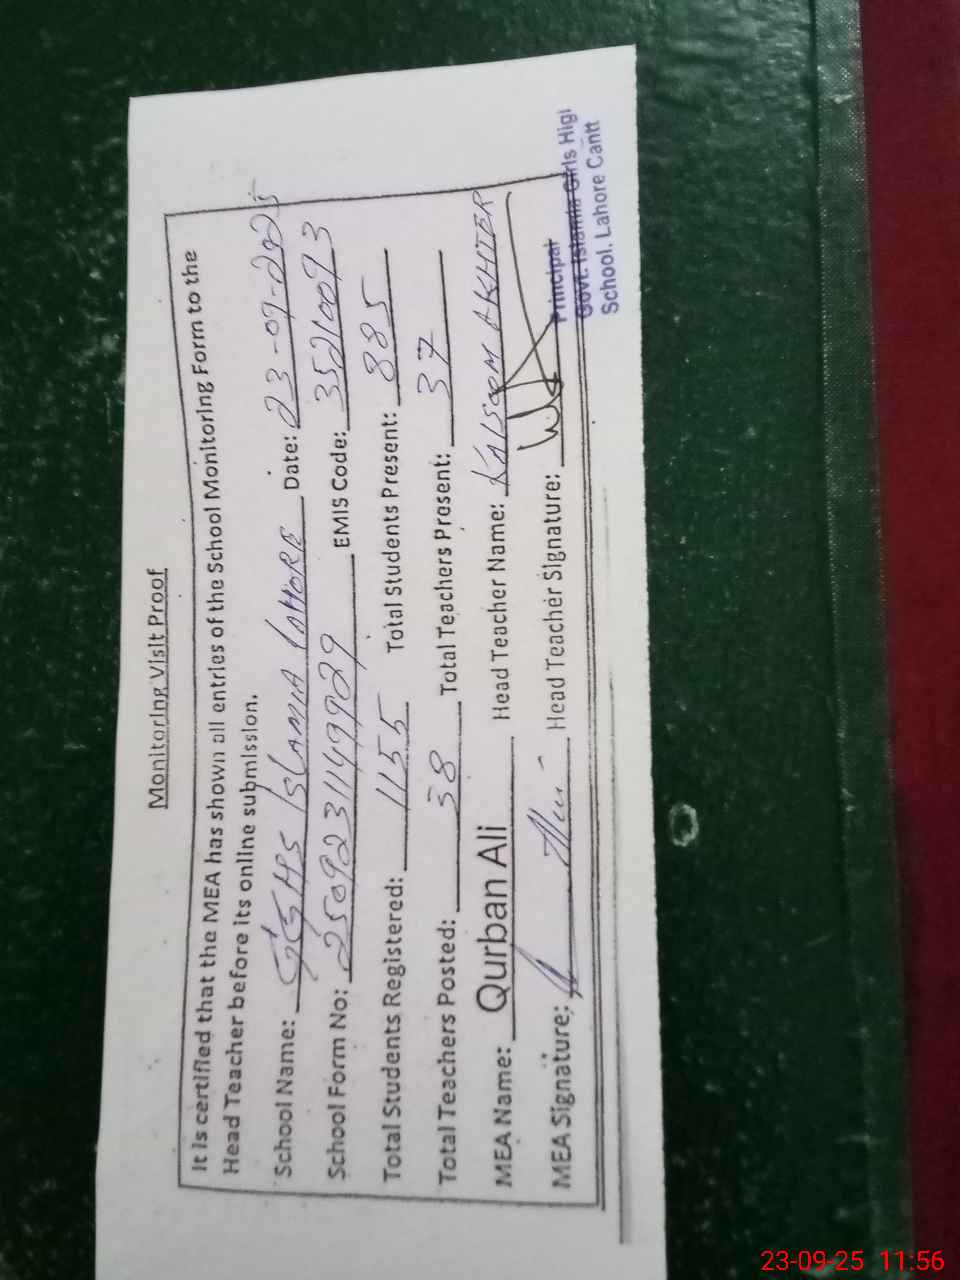 Monitoring Visit Proof
It is certified that the MEA has shown all entries of the School Monitoring Form to the
Head Teacher before its online submission.
School Name: GGHS ISLAMIA LAHORE Date: 23-09-2025
School Form No: 2509231149929 EMIS Code: 35210093
Total Students Registered: 1155 Total Students Present: 885
Total Teachers Posted: 38 Total Teachers Present: 37
MEA Name: Qurban Ali Head Teacher Name: KALSOOM AKHTER
MEA Signature: Head Teacher Signature:
Principal
Govt. Islamia Girls Higl
School. Lahore Cantt
23-09-25 11:56